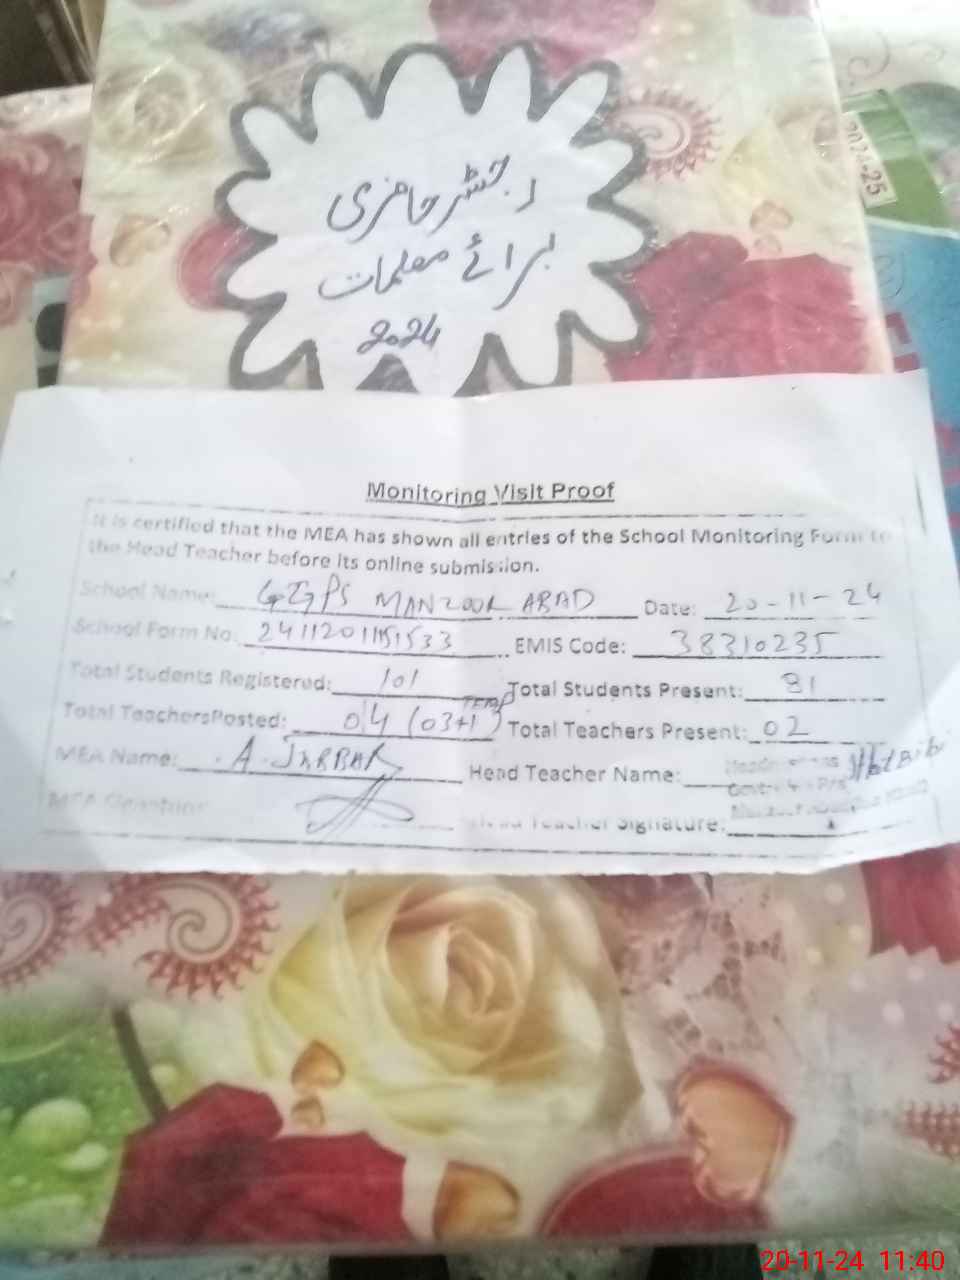 رجسٹر حاضری
برائے معلمات
2024
2024-25
Monitoring Visit Proof
It is certified that the MEA has shown all entries of the School Monitoring Form to
the Head Teacher before its online submission.
School Name: GGPS MANZOOR ABAD Date: 20-11-24
School Form No. EMIS Code: 38310235
Total Students Registered: 101 Total Students Present: 81
Total TeachersPosted: 04 (03+1 TEMP) Total Teachers Present: 02
MEA Name: A. JABBAR Head Teacher Name:
MEA Signature: Head Teacher Signature:
20-11-24 11:40